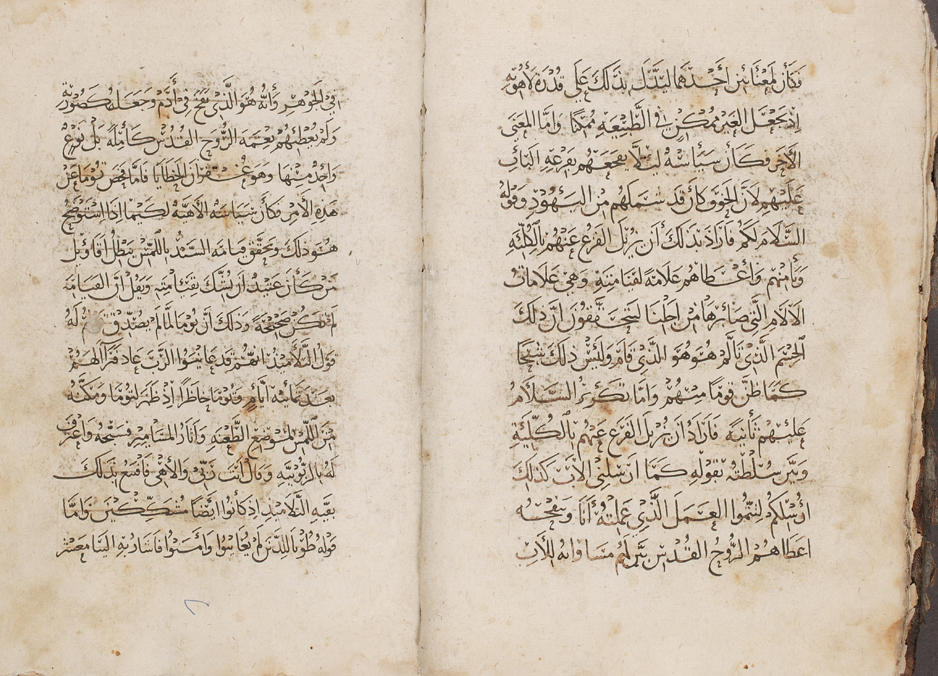 فكان لمعنائين احدهما ليدل بذلك على قدرة لاهوته
اذ جعل الغير ممكن في الطبيعه ممكنا واما المعنى
الاخر فكان سياسة ليلا يفجعهم بقرعه الباب
عليهم لان الخوف كان قد شملهم من اليهود وقوله
السلام لكم فاراد بذلك ان يزيل الفزع عنهم بالكليه
واعطاهم علامة لقيامته وهي علامات
الالام التي صابرها من اجلنا ليتحققون ان ذلك
الجسم الذي تالم هو هو الذي قام وليس ذلك شبحا
كما ظن قوما منهم واما تكرير السلام
عليهم ثانية فاراد ان يزيل الفزع عنهم بالكلية
وبين سلطته بقوله كما ارسلني الاب كذلك
ارسلكم لتتموا العمل الذي عملته انا ونفخه
اعطاهم الروح القدس بين لهم مساواته للاب
في الجوهر وانه هو الذي نفخ في أدم وجعل له صورته
ولم يعطيهم نعمة الروح القدس كاملة بل نوع
واحد منها وهو غفران الخطايا فاما فحص توما عن
هذه الامور فكان سياسة الاهية لكيما اذا استوضح
هو ذلك وتحقق قيامة السيد باللمس يبطل اقاويل
من كان عتيد ان يشك بقيامته ويقل ان القيامة
لم تكن صحيحة وذلك ان توما لما لم يصدق له
قول التلاميذ انهم قد عاينوا الرب عاد تراآ لهم
بعد ثمانية أيام وتوما حاظرا اذ ظهر لتوما ومكنه
من اللمس لموضع الطعنه واثار المسامير فسبحه واعترف
له بالربوبيه وقال انت ربي والاهي فاقنع بذلك
بقية التلاميذ اذ كانوا ايضا متشككين واما
قوله طوبا للذين لم يعاينوا وأمنوا فاشار به الينا معشر